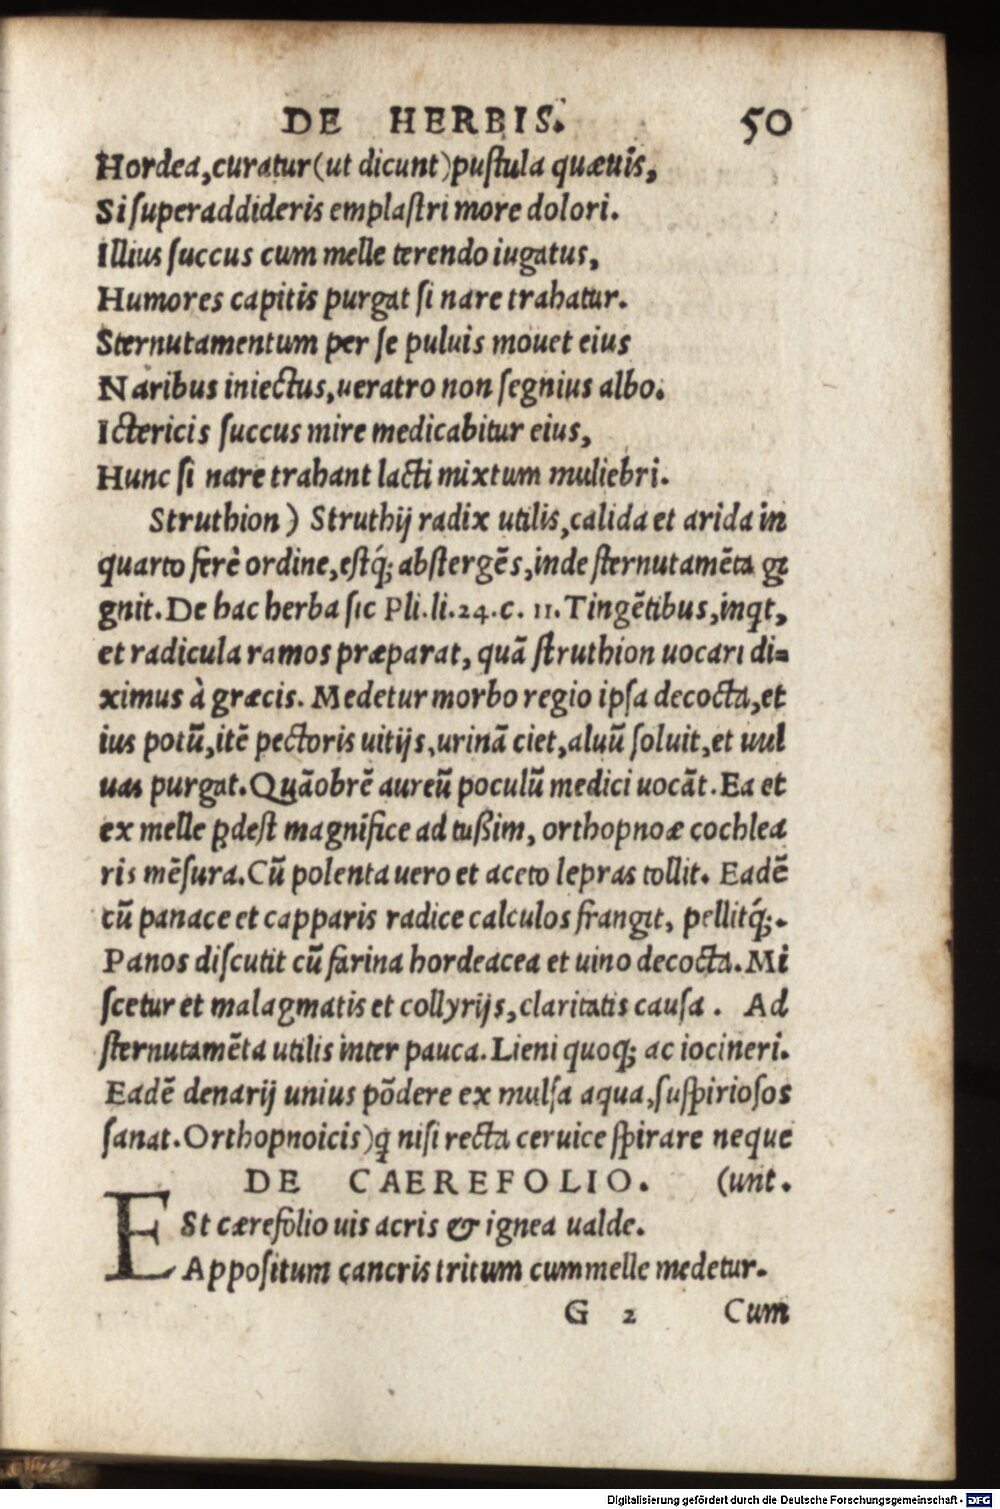 DE HERBIS. 50
Hordea, curatur (ut dicunt) puſtula quæuis,
Si ſuperaddideris emplaſtri more dolori.
Illius ſuccus cum melle terendo iugatus,
Humores capitis purgat ſi nare trahatur.
Sternutamentum per ſe puluis mouet eius
Naribus iniectus, ueratro non ſegnius albo.
Ictericis ſuccus mire medicabitur eius,
Hunc ſi nare trahant lacti mixtum muliebri.
Struthion) Struthij radix utilis, calida et arida in
quarto ferè ordine, eſtq́; abſtergẽs, inde ſternutamẽta gi
gnit. De hac herba ſic Pli. li. 24. c. 11. Tingẽtibus, inqt,
et radicula ramos præparat, quã ſtruthion uocari di-
ximus à græcis. Medetur morbo regio ipſa decocta, et
ius potũ, itẽ pectoris uitijs, urinã ciet, aluũ ſoluit, et uul
uas purgat. Quãobrẽ aureũ poculũ medici uocãt. Ea et
ex melle ꝓdeſt magnifice ad tußim, orthopnoæ cochlea
ris mẽſura. Cũ polenta uero et aceto lepras tollit. Eadẽ
cũ panace et capparis radice calculos frangit, pellitq́;.
Panos diſcutit cũ farina hordeacea et uino decocta. Mi
ſcetur et malagmatis et collyrijs, claritatis cauſa. Ad
ſternutamẽta utilis inter pauca. Lieni quoq; ac iocineri.
Eadẽ denarij unius põdere ex mulſa aqua, ſuſpirioſos
ſanat. Orthopnoicis) q niſi recta ceruice ſpirare neque
DE CAEREFOLIO. (unt.
ESt cærefolio uis acris & ignea ualde.
Appoſitum cancris tritum cum melle medetur.
G 2 Cum
Digitalisierung gefördert durch die Deutsche Forschungsgemeinschaft - DFG